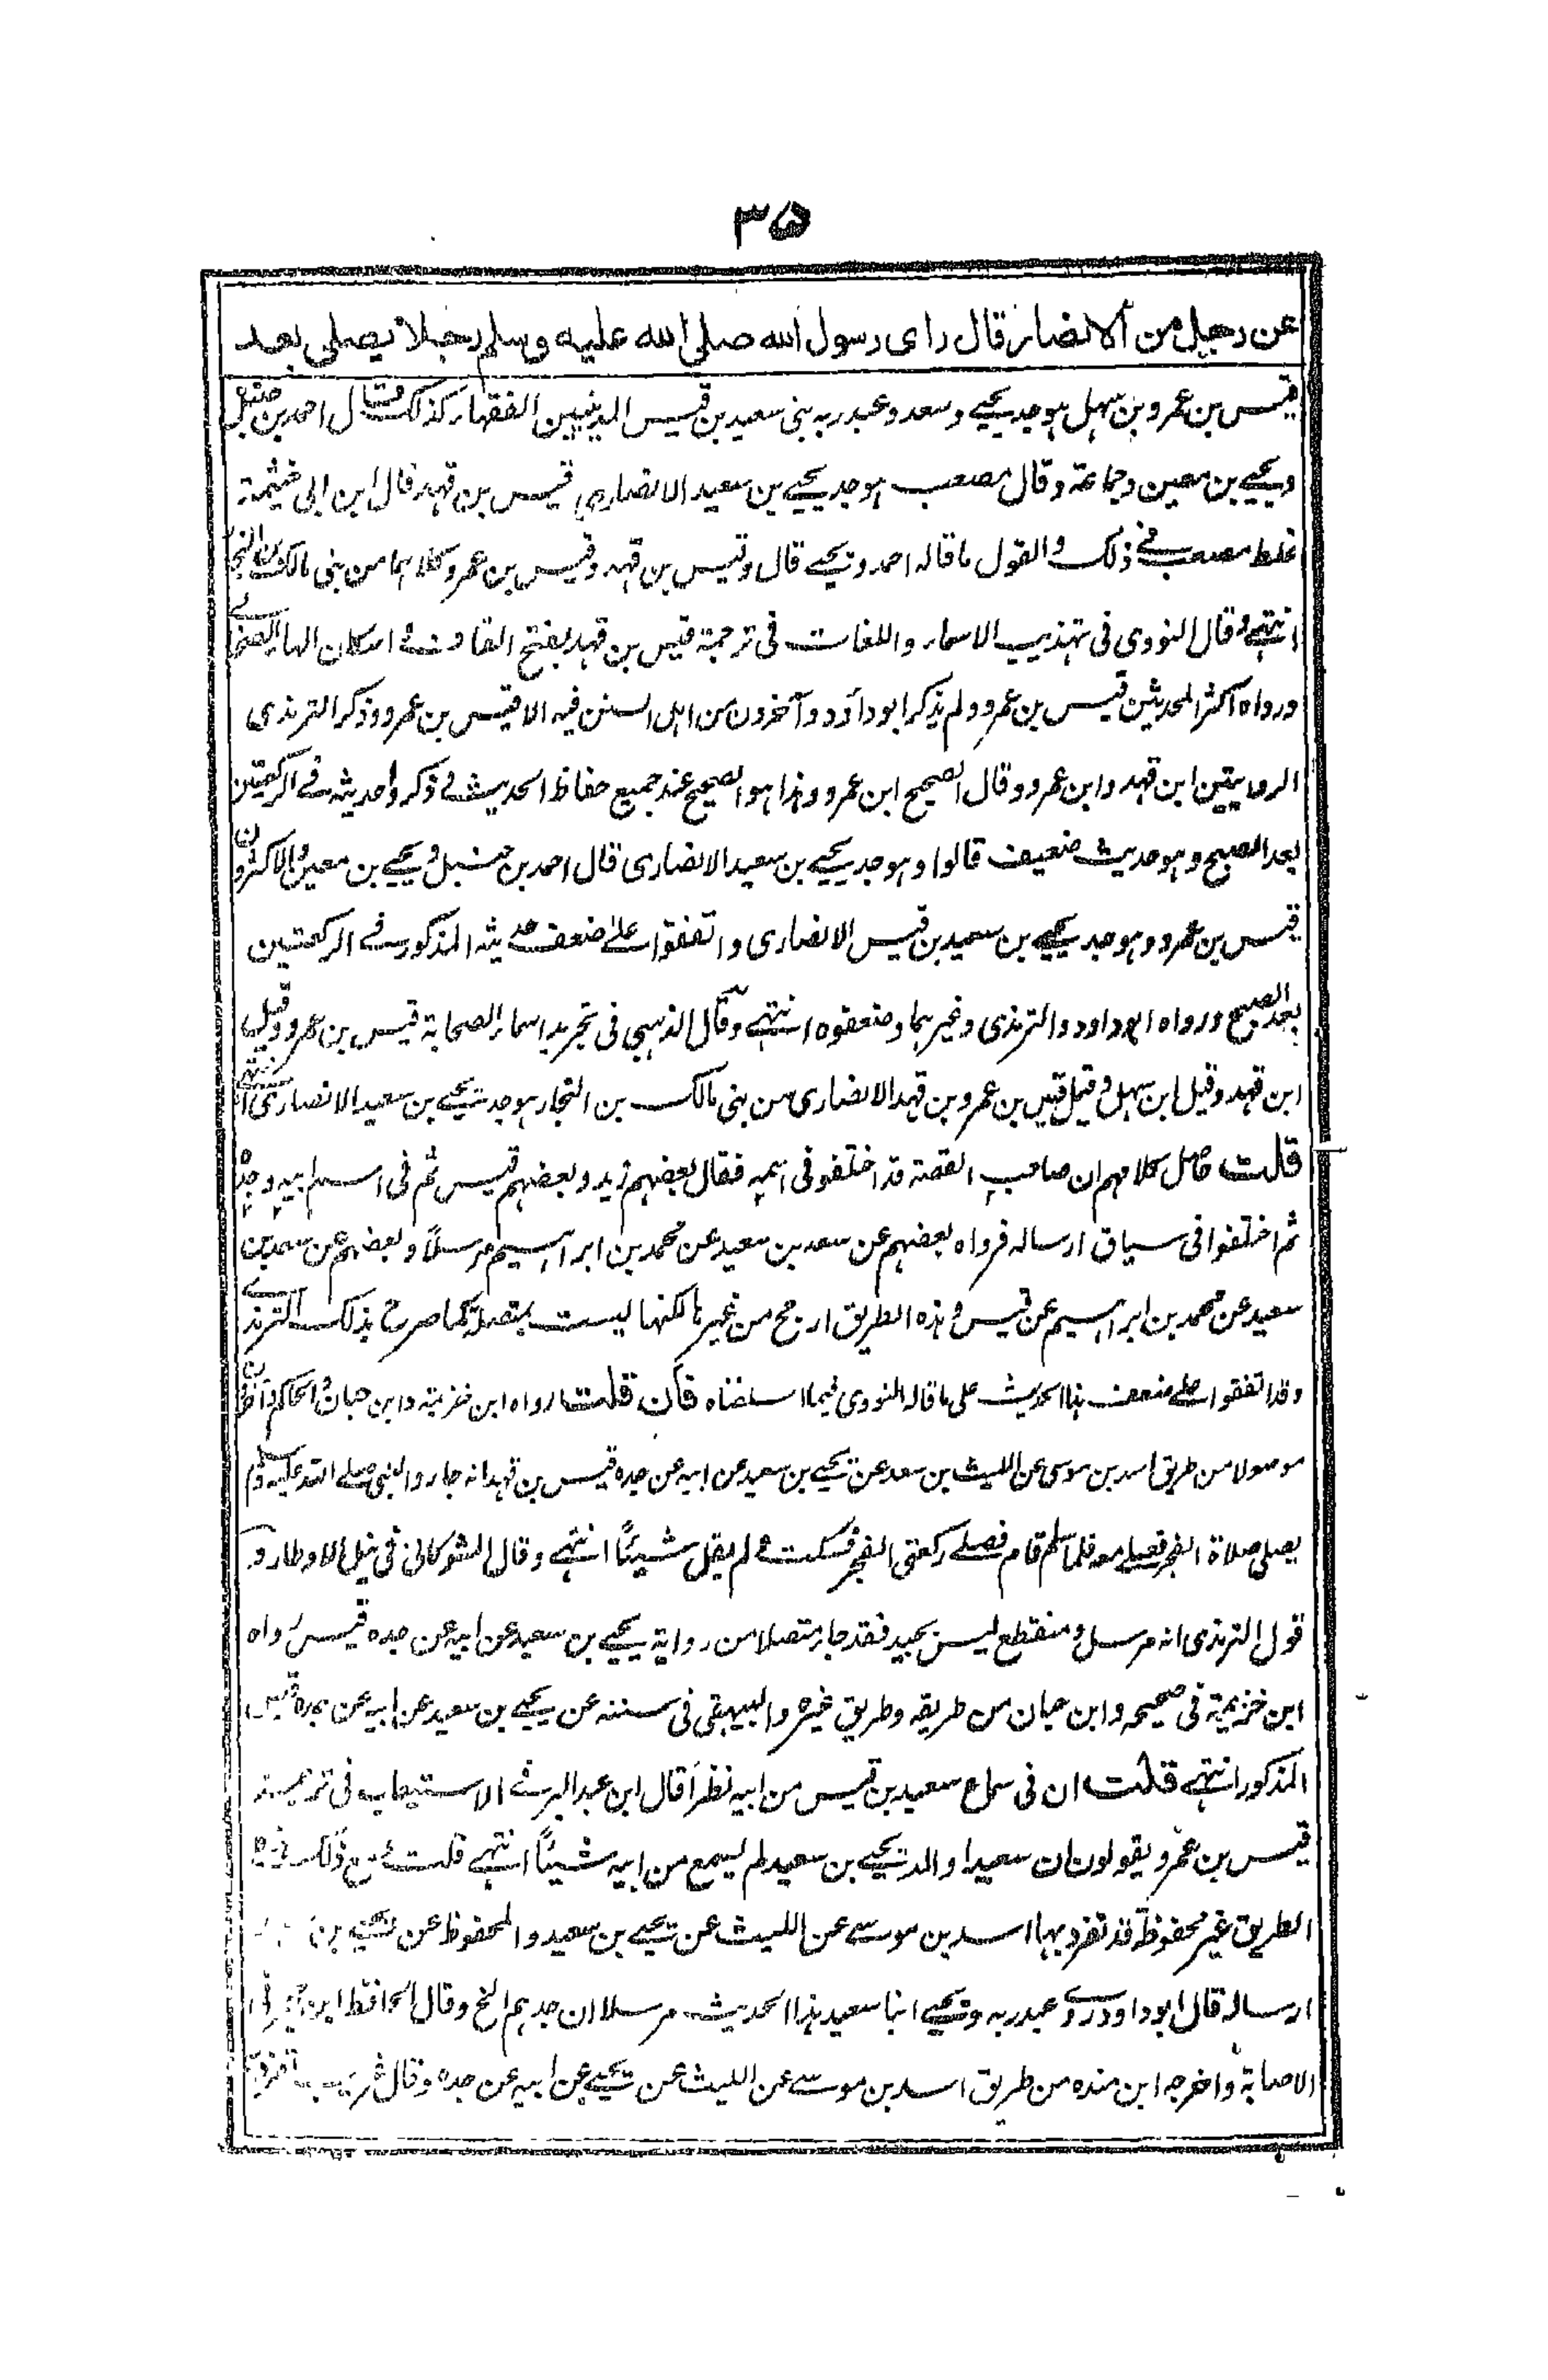 ٣٥
عن رجل من الانصار قال رای رسول الله صلی الله علیه وسلم رجلا یصلی بعد
قیس بن عمرو بن سهل هو جد یحیے وسعد وعبد ربه بنی سعید بن قیس المدنیین الفقهاء کذلک قال احمد بن حنبل
ویحیے بن معین وجماعة وقال مصعب هو جد یحیے بن سعید الانصاری قیس بن قهد قال ابن ابی خیثمة
غلط مصعب فے ذلک والقول ما قاله احمد ویحیے قال وقیس بن قهد وقیس بن عمرو کلاهما من بنی مالک بن النجار
انتهے وقال النووی فی تهذیب الاسماء واللغات فی ترجمة قیس بن قهد بفتح القاف واسکان الهاء الصحابے
ورواه اکثر المحدثین قیس بن عمرو ولم یذکر ابو داؤد وآخرون من اهل السنن فیه الا قیس بن عمرو وذکر الترمذی
الروایتین ابن قهد وابن عمرو وقال الصحیح ابن عمرو وهذا هو الصحیح عند جمیع حفاظ الحدیث وذکروا حدیثه فے الرکعتین
بعد الصبح وهو حدیث ضعیف قالوا وهو جد یحیے بن سعید الانصاری قال احمد بن حنبل ویحیے بن معین والاکثرون
قیس بن عمرو وهو جد یحیے بن سعید بن قیس الانصاری واتفقوا علے ضعف حدیثه المذکور فے الرکعتین
بعد الصبح ورواه ابو داود والترمذی وغیرهما وضعفوه انتهے وقال الذهبی فی تجرید اسماء الصحابة قیس بن عمرو وقیل
ابن قهد وقیل ابن سهل وقیل قیس بن عمرو بن قهد الانصاری من بنی مالک بن النجار هو جد یحیے بن سعید الانصاری انتهے
قلت حاصل کلامهم ان صاحب القصة قد اختلفو فی اسمه فقال بعضهم زید وبعضهم قیس ثم فی اسم ابیه وجده
ثم اختلفوا فی سیاق ارساله فرواه بعضهم عن سعد بن سعید عن محمد بن ابراهیم مرسلاً وبعضهم عن سعد بن
سعید عن محمد بن ابراهیم عن قیس وهذه الطریق ارجح من غیرها لکنها لیست بمتصلة کما صرح بذلک الترمذے
وقد اتفقوا علے ضعف هذا الحدیث علی ما قاله النووی فیما اسلفناه فان قلت رواه ابن خزیمة وابن حبان والحاکم
موصولا من طریق اسد بن موسی عن اللیث بن سعد عن یحیے بن سعید عن ابیه عن جده قیس بن قهد انه جاء والنبی صلے الله علیه وسلم
یصلی صلاة الفجر فصلے معه فلما سلم قام فصلے رکعتی الفجر فسکت ولم یقل شیئاً انتهے وقال الشوکانی فی نیل الاوطار و
قول الترمذی انه مرسل ومنقطع لیس بجید فقد جاء متصلا من روایة یحیے بن سعید عن ابیه عن جده قیس رواه
ابن خزیمة فی صحیحه وابن حبان من طریقه وطریق غیره والبیهقی فی سننه عن یحیے بن سعید عن ابیه عن جده قیس
المذکور انتهے قلت ان فی سماع سعید بن قیس من ابیه نظراً قال ابن عبد البر فے الاستیعاب فی ترجمة
قیس بن عمرو یقولون ان سعیدا والد یحیے بن سعید لم یسمع من ابیه شیئاً انتهے قلت ومع ذلک فهذه
الطریق غیر محفوظة قد تفرد بها اسد بن موسے عن اللیث عن یحیے بن سعید والمحفوظ عن یحیے بن
ارساله قال ابو داود روے عبد ربه ویحیے ابنا سعید هذا الحدیث مرسلا ان جدهم الخ وقال الحافظ ابن حجر فی
الاصابة واخرجه ابن منده من طریق اسد بن موسے عن اللیث عن یحیے عن ابیه عن جده وقال غریب تفرد به